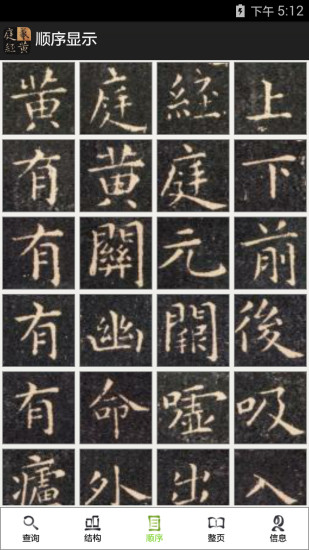 下午 5:12
顺序显示
黄庭經上
有黄庭下
有關元前
有幽闕後
有命嘘吸
廬外出入
查询 结构 顺序 整页 信息